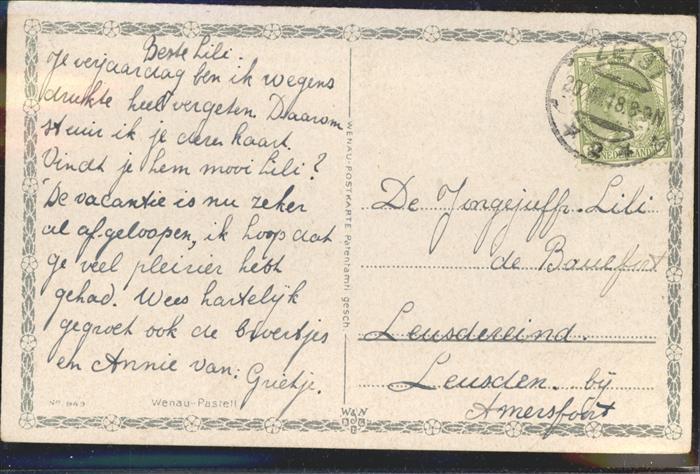 Beste Lili.
Je verjaardag ben ik wegens
drukte heel vergeten. Daarom
stuur ik je deze kaart.
Vindt je hem mooi Lili?
De vacantie is nu zeker
al afgeloopen, ik hoop dat
je veel pleizier hebt
gehad. Wees hartelijk
gegroet ook de broertjes
en Annie van: Grietje.
No. 943 Wenau-Pastell
WENAU-POSTKARTE Patentamtl. gesch.
W&N
ZEIST
8-9N
NEDERLAND
De Jongejuffr. Lili
de Beaufort
Leusdereind.
Leusden. bij
Amersfoort